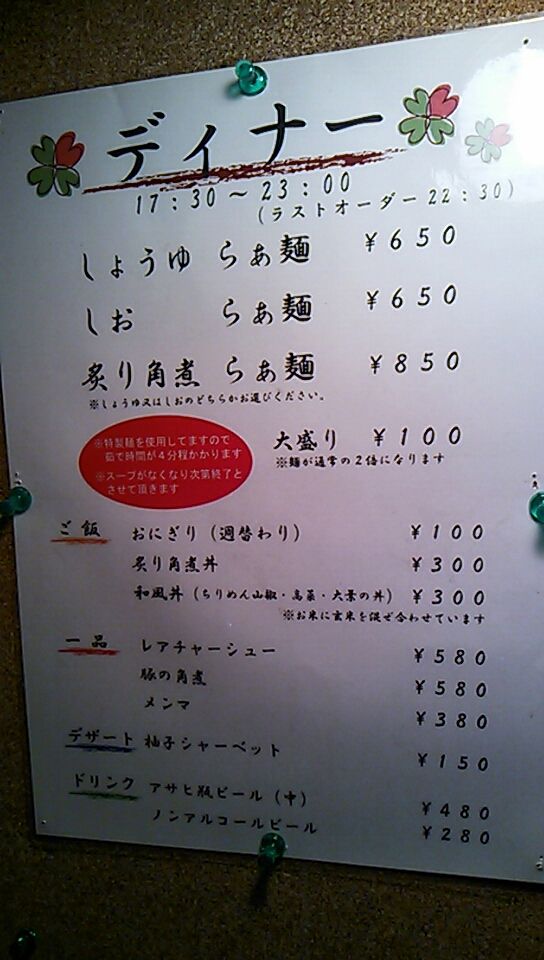 ディナー
17:30～23:00
(ラストオーダー22:30)
しょうゆ らぁ麺 ¥650
しお らぁ麺 ¥650
炙り角煮 らぁ麺 ¥850
※しょうゆ又はしおのどちらかお選びください。
※特製麺を使用してますので
茹で時間が4分程かかります
※スープがなくなり次第終了と
させて頂きます
大盛り ¥100
※麺が通常の2倍になります
ご飯 おにぎり(週替わり) ¥100
炙り角煮丼 ¥300
和風丼(ちりめん山椒・高菜・大葉の丼) ¥300
※お米に玄米を混ぜ合わせています
一品 レアチャーシュー ¥580
豚の角煮 ¥580
メンマ ¥380
デザート 柚子シャーベット ¥150
ドリンク アサヒ瓶ビール(中) ¥480
ノンアルコールビール ¥280